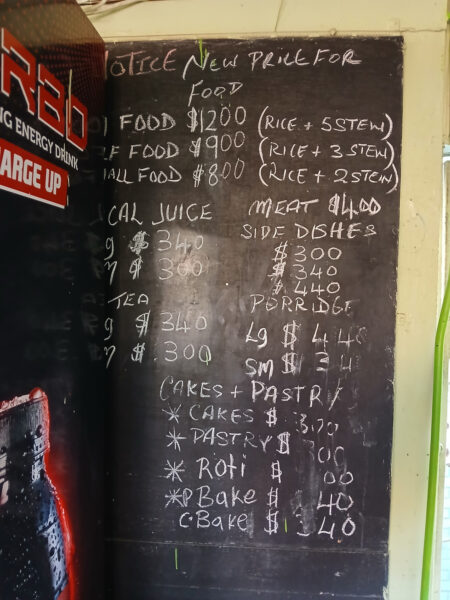 RBO
NG ENERGY DRINK
HARGE UP
NOTICE NEW PRICE FOR
FOOD
FOOD $1200 (RICE + 5 STEW)
FOOD $900 (RICE + 3 STEW)
ALL FOOD $800 (RICE + 2 STEW)
CAL JUICE
g $ 340
$ 300
TEA
g $ 340
$ 300
MEAT $400
SIDE DISHES
$ 300
$ 340
$ 440
PORRIDGE
Lg $ 44
SM $ 34
CAKES + PASTRY
* CAKES $
* PASTRY $ 00
* Roti $ 00
* P Bake $ 40
C.Bake $ 340